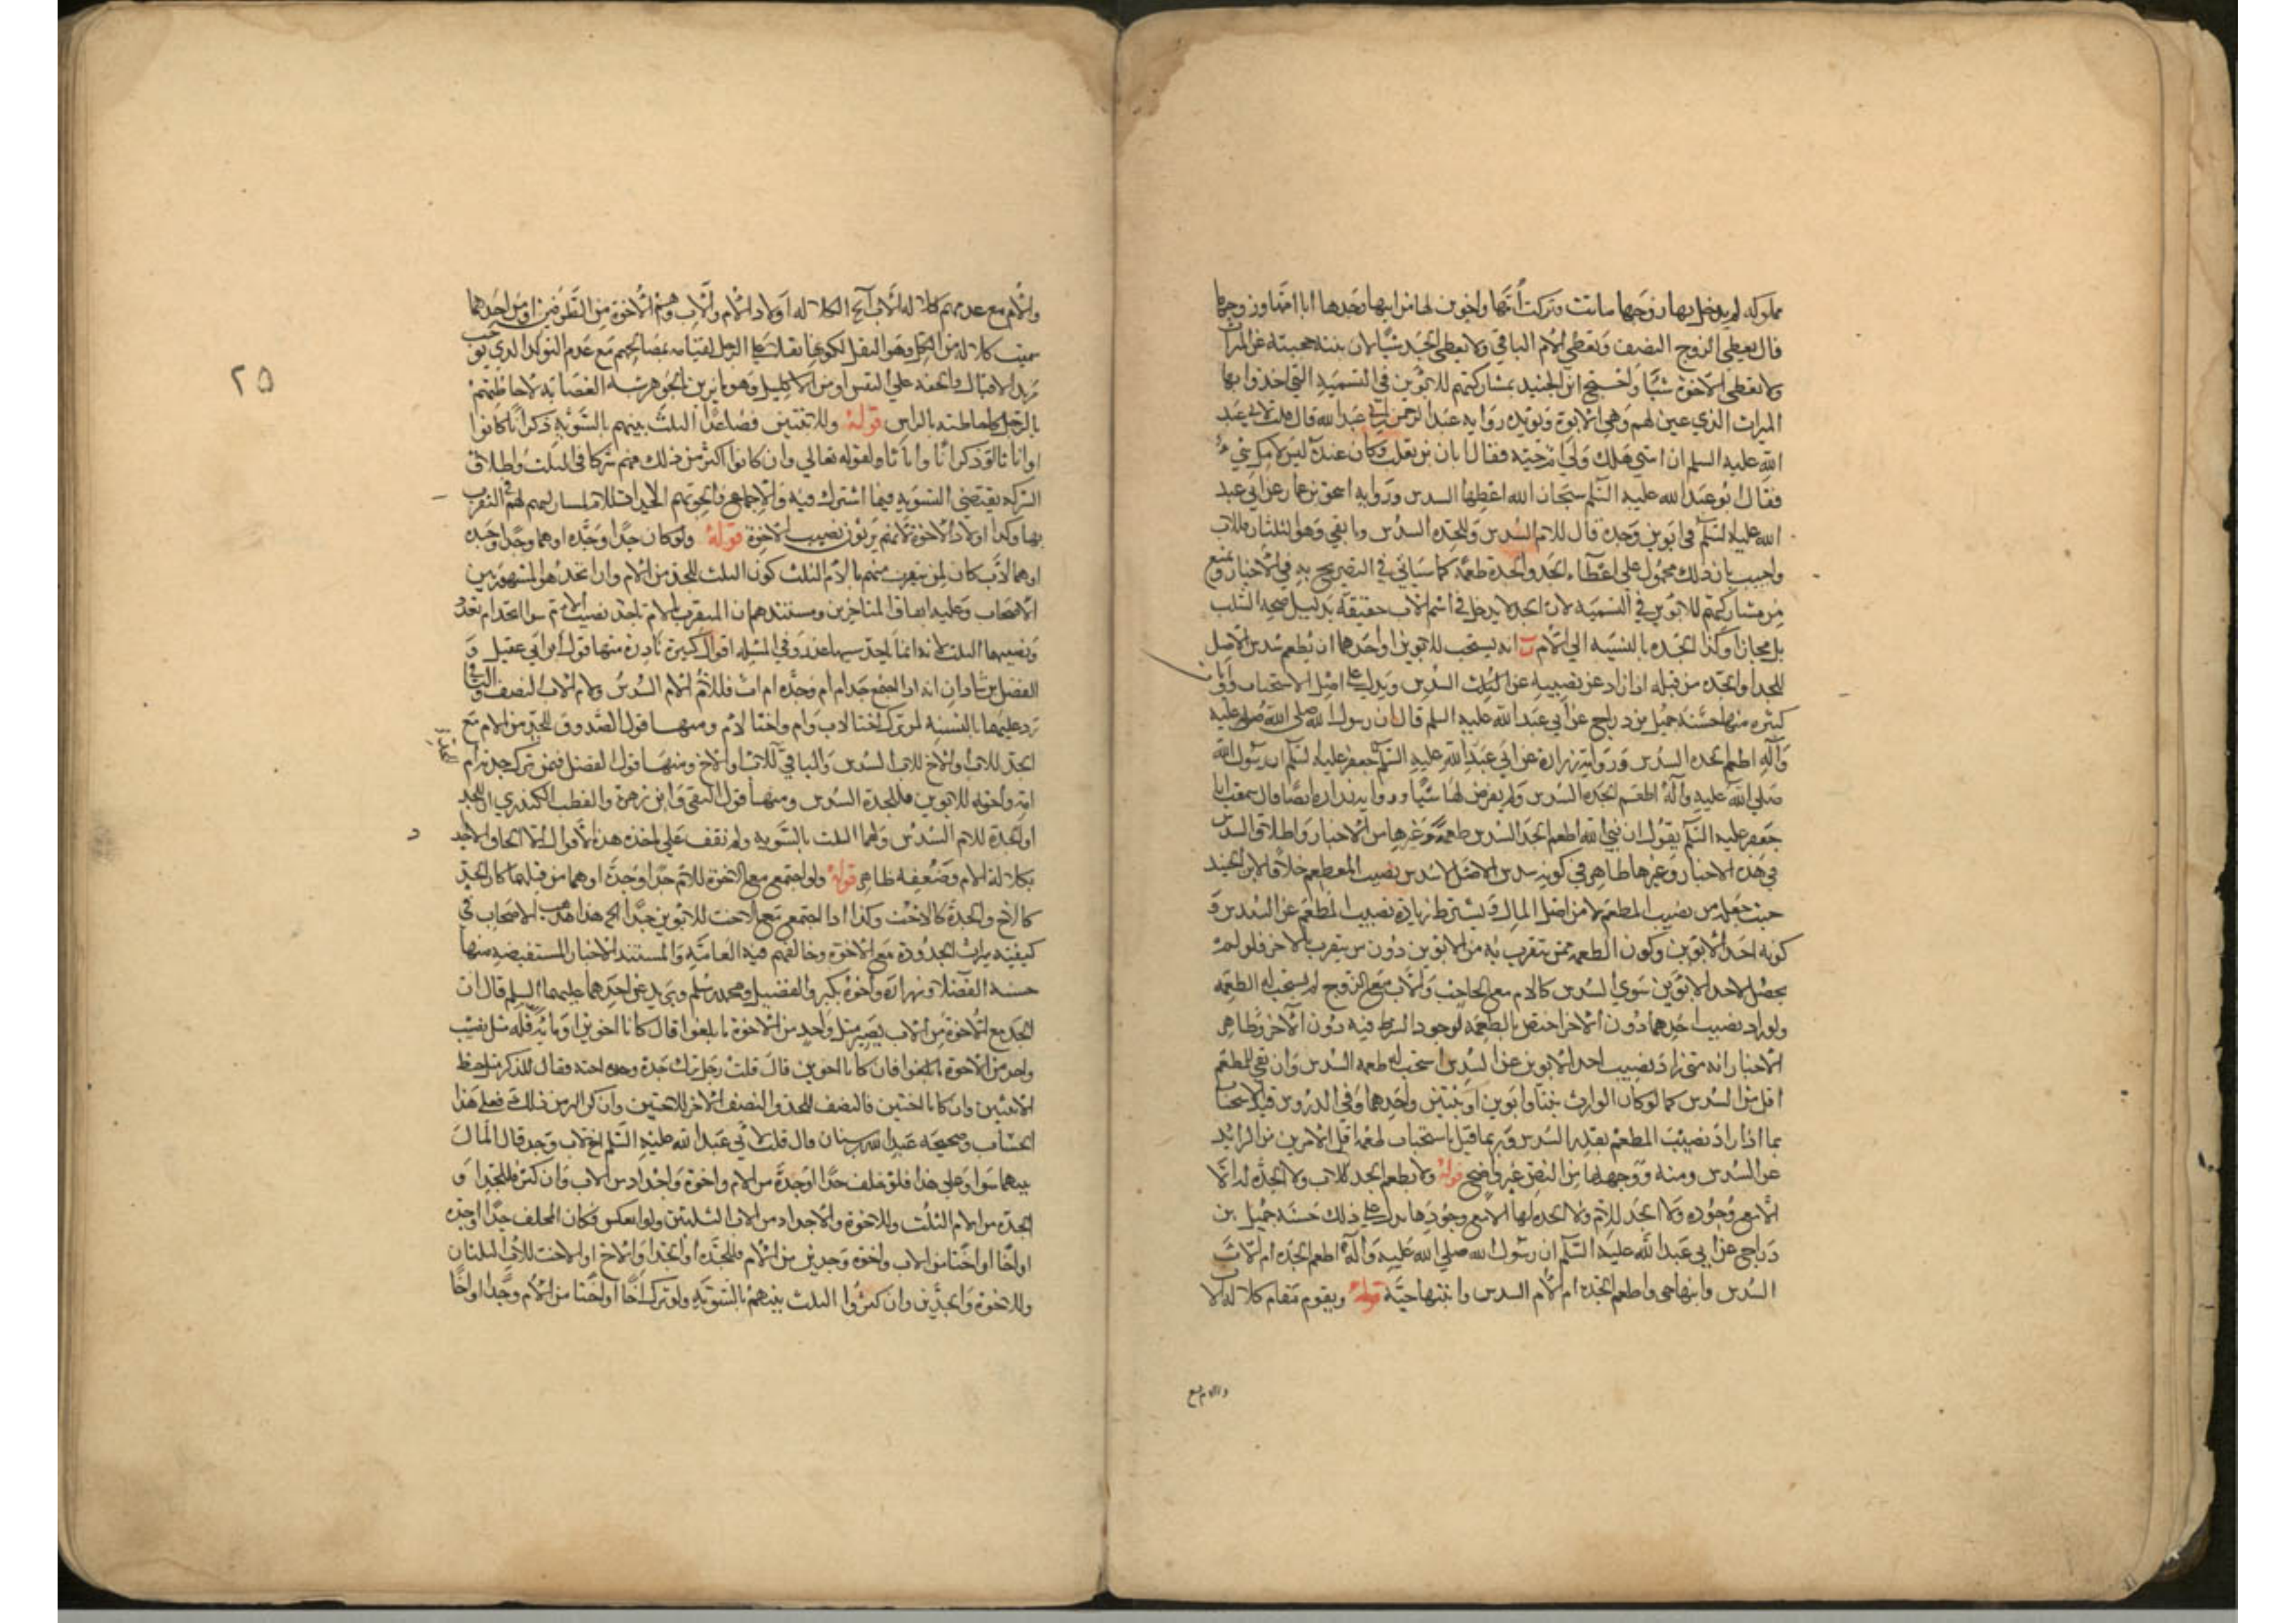 مملوكه لم يدخل بها زوجها ماتت وتركت أمها واخوين لها من ابيها وجدها ابا امها وزوجها
قال يعطي الزوج النصف وتعطي الام الباقي ولا يعطي الجد شيا لان بنته حجبته عن الميراث
ولا تعطي الاخوة شيا واحتج ابن الجنيد بمشاركتهم للابوين في التسمية التي اخذوا بها
الميراث الذي عين لهم وهي الابوة ويؤيده رواية عبد الرحمن بن ابي عبد الله قال قلت لابي عبد
الله عليه السلم ان ابنتي هلك وامي حية فقال ابان بن تغلب وكان عنده ليس لامك شيء
فقال ابو عبد الله عليه السلم سبحان الله اعطها السدس ورواية اسحق بن عمار عن ابي عبد
الله عليه السلم في ابوين وجدة قال للام السدس وللجدة السدس وما بقي وهو الثلثان للاب
واجيب بان ذلك محمول على اعطاء الجد والجدة طعمة كما سياتي في التصريح به في الاخبار ونمنع
من مشاركتهم للابوين في التسمية لان الجد لا يدخل في اسم الاب حقيقة بدليل صحة السلب
بل مجازا وكذا الجدة بالنسبة الي الام ب انه يستحب للابوين او احدهما ان يطعم سدس الاصل
للجد او الجدة من قبله اذا زاد عن نصيبه عن السدس ويدل على اصل الاستحباب روايات
كثيرة منها حسنة جميل بن دراج عن ابي عبد الله عليه السلم قال ان رسول الله صلى الله عليه
وآله اطعم الجدة السدس ورواية زرارة عن ابي عبد الله عليه السلم جعفر عليه السلم ان رسول الله
صلى الله عليه وآله اطعم الجدة السدس ولم يفرض لها شيا ورواية زرارة ايضا قال سمعت ابا
جعفر عليه السلم يقول ان نبي الله اطعم الجد السدس طعمة وغيرها من الاخبار واطلاق السدس
في هذه الاخبار وغيرها ظاهر في كونه سدس الاصل لا سدس نصيب المطعم خلافا لابن الجنيد
حيث جعله من نصيب المطعم لا من اصل المال ويشترط زيادة نصيب المطعم عن السدس و
كونه احد الابوين وكون الطعمة ممن يتقرب به من الابوين دون من يتقرب بالاخر فلو لم
يحصل لاحد الابوين سوى السدس كالام مع الحاجب والاب مع الزوج لم يستحب له الطعمة
ولو زاد نصيب احدهما دون الاخر اختص بالطعمة لوجود الشرط فيه دون الاخر وظاهر
الاخبار انه متى زاد نصيب احد الابوين عن السدس استحب له طعمة السدس وان بقي للمطعم
اقل من السدس كما لو كان الوارث بنتا وابوين او بنتين واحدهما وفي الدروس قيد الاستحباب
بما اذا زاد نصيب المطعم بقدر السدس وربما قيل باستحباب طعمة اقل الامرين من الزائد
عن السدس ومنه ووجههما من النص غير واضح قوله ولا يطعم الجد للاب ولا الجدة له الا
الا مع وجوده ولا الجد للام ولا الجدة لها الا مع وجودها يدل على ذلك حسنة جميل بن
دراج عن ابي عبد الله عليه السلم ان رسول الله صلى الله عليه وآله اطعم الجدة ام الاب
السدس وابنها حي واطعم الجدة ام الام السدس وابنتها حية قوله ويقوم مقام كلالة الا
والام مع
والام مع عدمهم كلالة الاب الخ الكلالة اولاد الام والاب وهم الاخوة من الطرفين او من احدهما
سميت كلالة من الكل وهو الثقل لكونها ثقلا على الرجل لقيامه بمصالحهم مع عدم التولد الذي يوجب
مزيد الاقبال والخفة على النفس او من الاكليل وهو ما يزين بالجوهر شبه العصابة لاحاطتهم
بالرجل كاحاطته بالراس قوله وللاثنين فصاعدا الثلث بينهم بالسوية ذكرانا كانوا
او اناثا او ذكرانا واناثا ولقوله تعالي وان كانوا اكثر من ذلك فهم شركا في الثلث واطلاق
الشركة يقتضي التسوية فيما اشترك فيه والاجماع
بها وكذا اولاد الاخوة لانهم يرثون نصيب الاخوة قوله ولو كان جدا او جدة او هما وجدا وجدة
او هما لاب كان لمن تقرب منهم بالام الثلث كون الثلث للجد من الام وان اتحد هو المشهور بين
الاصحاب وعليه اتفاق المتاخرين ومستندهم ان المتقرب بالام ياخذ نصيب الام سوا اتحد ام تعدد
ونصيبها الثلث وفي المسئلة اقوال كثيرة نادرة منها قول ابن ابي عقيل و
الفضل بن شاذان انه اذا اجتمع جدة ام ام وجدة ام اب فللام الام السدس ولام الاب النصف والباقي
رد عليهما بالنسبة لمن ترك اختا لاب وام واختا لام ومنها قول الصدوق للجد من الام مع
الجد للاب والاخ للاب السدس والباقي للجد للاب والاخ ومنها قول الفضل فيمن ترك جدته ام
امه واخته للابوين فللجدة السدس ومنها قول التقي وابن زهرة والقطب الكيدري ان للجد
او الجدة للام السدس ولهما الثلث بالسوية ولم نقف على ماخذ هذه الاقوال الا الحاق الاجداد
بكلالة الام وضعفه ظاهر قوله ولو اجتمع مع الاخوة للام جدا وجدة او هما من قبلها كان الجد
كالاخ والجدة كالاخت وكذا اذا اجتمع مع الاخت للابوين جدا الخ هذا مذهب الاصحاب في
كيفية ميراث الجدودة مع الاخوة وخالفهم فيه العامة والمستند الاخبار المستفيضة منها
حسنة الفضلا وزرارة واخوه بكير والفضيل ومحمد بن مسلم وبريد عن احدهما عليهما السلم قال ان
الجد مع الاخوة من الاب يصير مثل واحد من الاخوة ما بلغوا قال كانا اخوين او مائة فله مثل نصيب
واحد من الاخوة ما بلغوا فان كانا اخوين قال قلت رجل ترك جده واخته فقال للذكر مثل حظ
الانثيين وان كانا اختين فالنصف للجد والنصف الاخر للاختين وان كن اكثر من ذلك فعلى هذا
الحساب وصحيحة عبد الله بن سنان قال قلت لابي عبد الله عليه السلم اخ لاب وجد قال المال
بينهما سوا وعلى هذا فلو خلف جدا او جدة من الام واخوة واجداد من الاب وان كثر فللجد او
الجدة من الام الثلث وللاخوة والاجداد من الاب الثلثين ولو انعكس فكان المخلف جدا او جدة
او اخا او اختا من الاب واخوة وجدين من الام فللجد او الجدة او الاخ او الاخت للاب الثلثان
وللاخوة والجدين وان كثروا الثلث بينهم بالسوية ولو ترك اخا او اختا من الام وجدا او اخا
٢٥